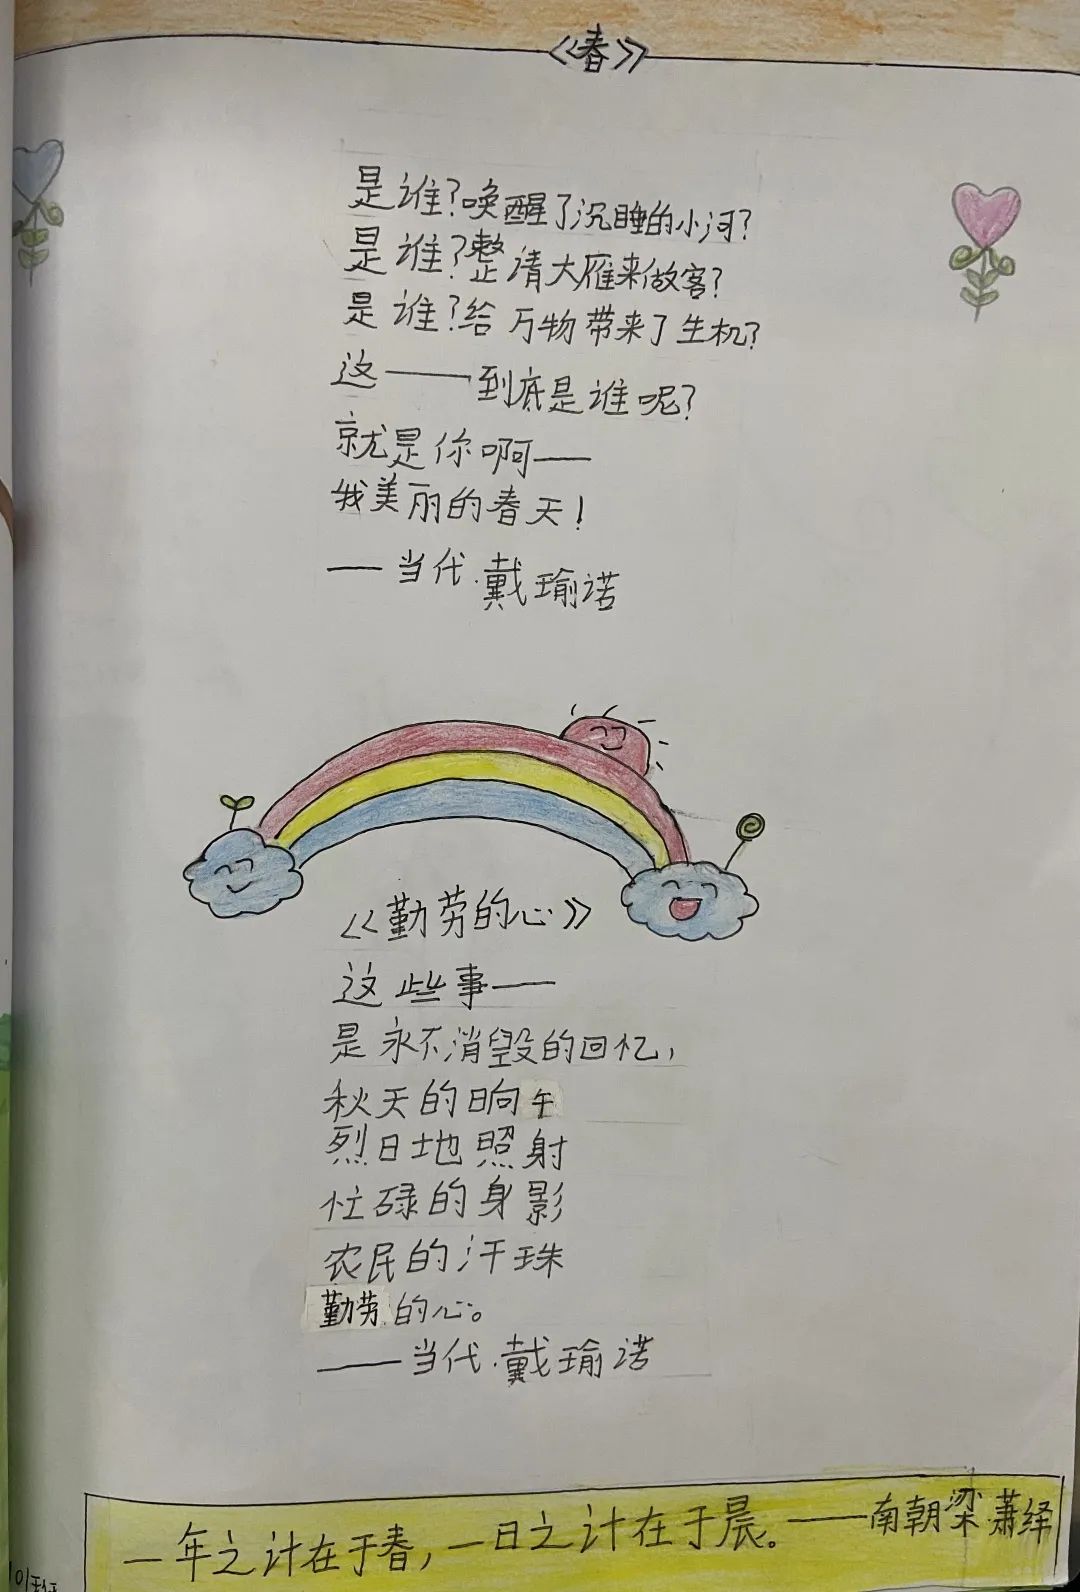 《春》
是谁?唤醒了沉睡的小河?
是谁?整请大雁来做客?
是谁?给万物带来了生机?
这——到底是谁呢?
就是你啊——
我美丽的春天!
——当代·戴瑜诺
《勤劳的心》
这些事——
是永不消毁的回忆,
秋天的晌午
烈日地照射
忙碌的身影
农民的汗珠
勤劳的心。
——当代·戴瑜诺
一年之计在于春,一日之计在于晨。——南朝梁·萧绎